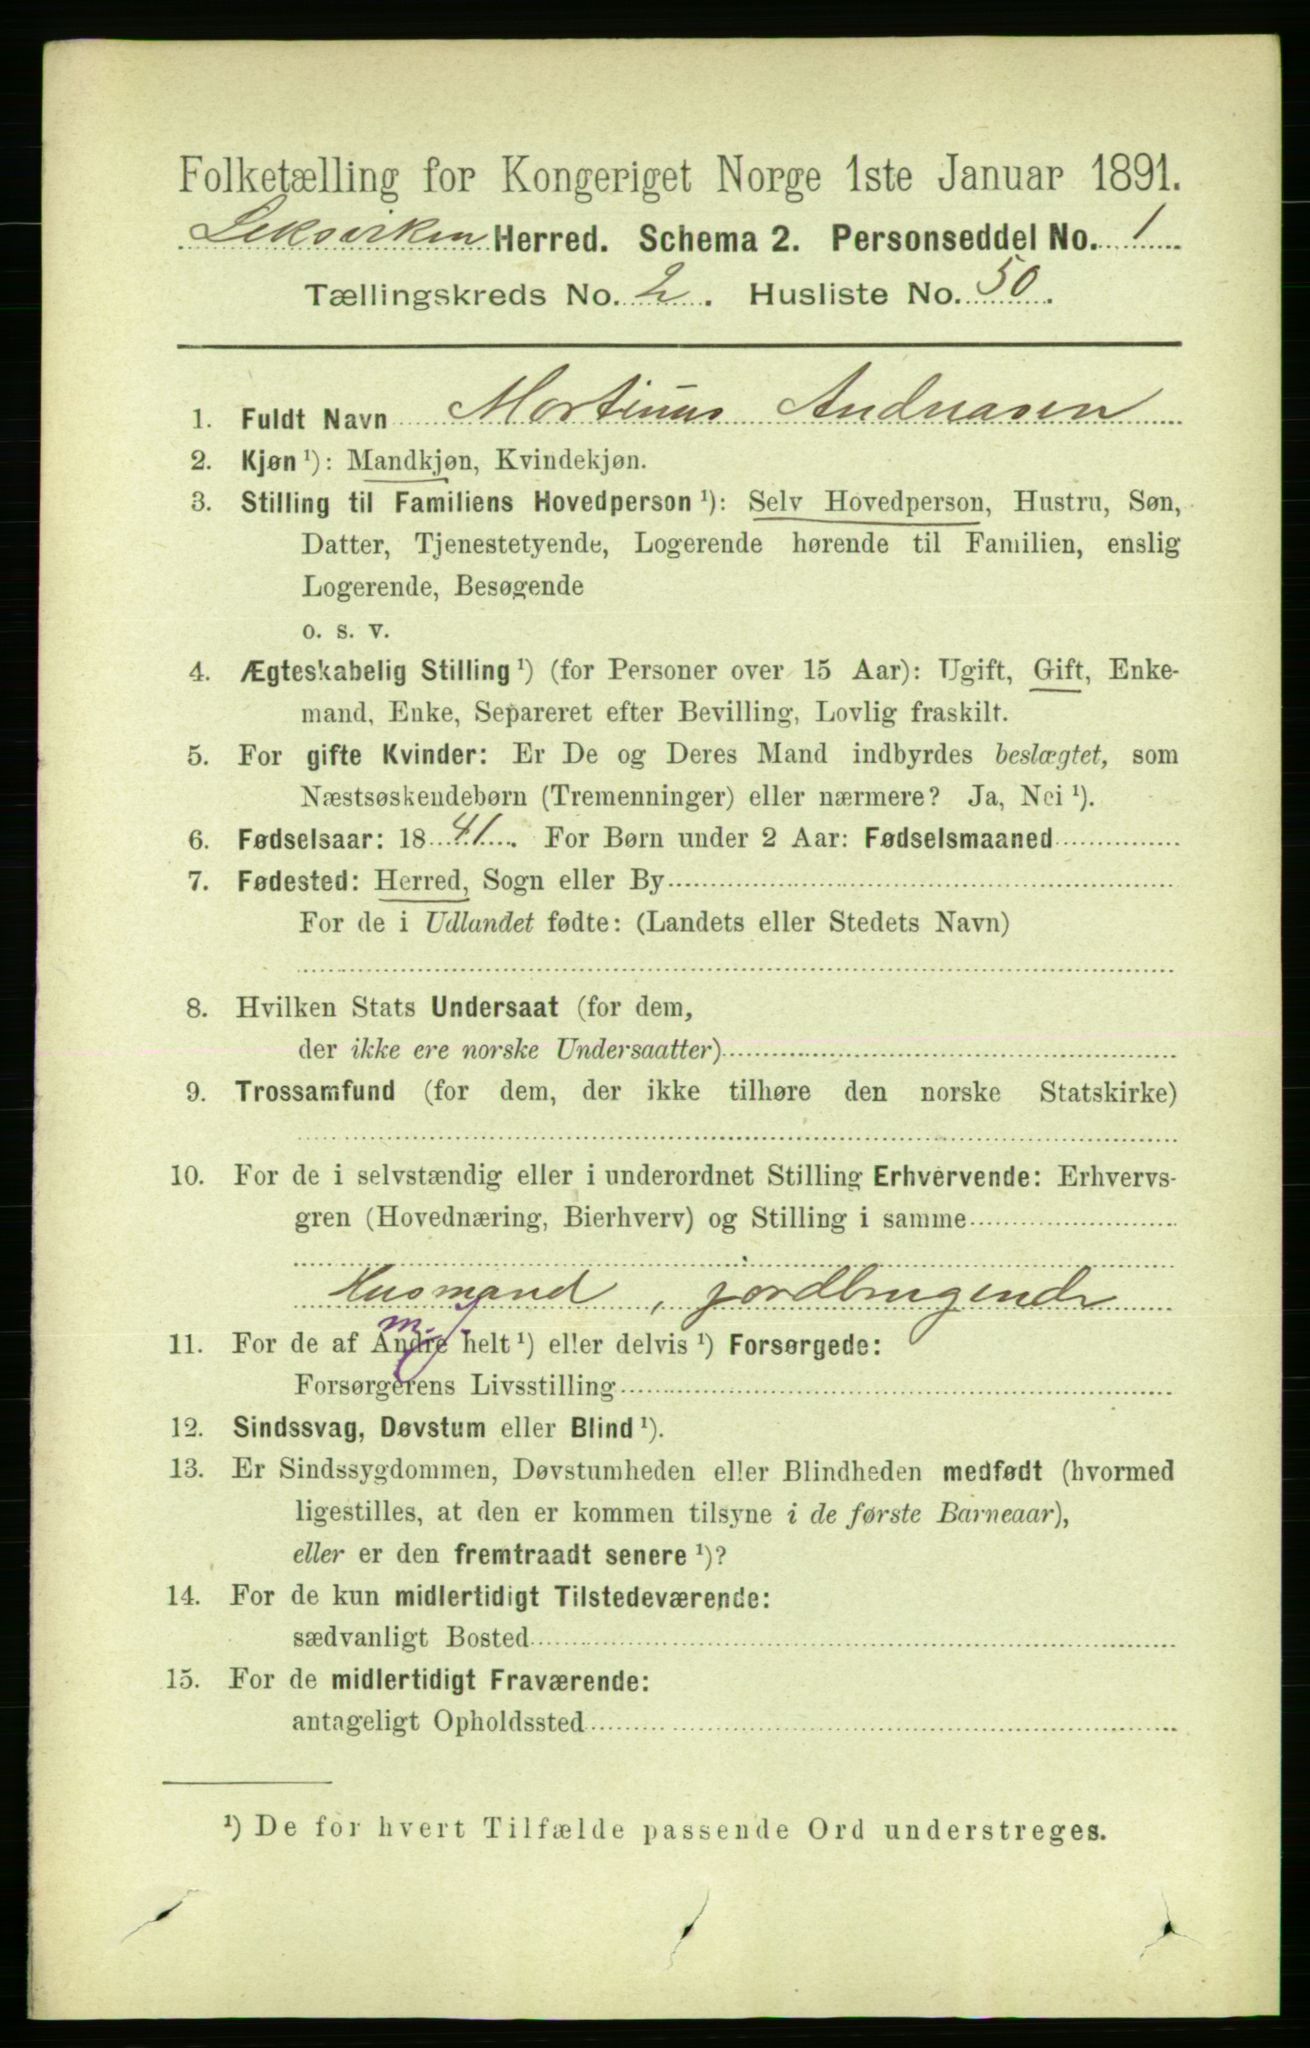 Folketælling for Kongeriget Norge 1ste Januar 1891.
Leksviken Herred. Schema 2. Personseddel No. 1
Tællingskreds No. 2. Husliste No. 50.
1. Fuldt Navn Mortinus Andreasen
2. Kjøn ¹): Mandkjøn, Kvindekjøn.
3. Stilling til Familiens Hovedperson ¹): Selv Hovedperson, Hustru, Søn,
Datter, Tjenestetyende, Logerende hørende til Familien, enslig
Logerende, Besøgende
o. s. v.
4. Ægteskabelig Stilling ¹) (for Personer over 15 Aar): Ugift, Gift, Enke-
mand, Enke, Separeret efter Bevilling, Lovlig fraskilt.
5. For gifte Kvinder: Er De og Deres Mand indbyrdes beslægtet, som
Næstsøskendebørn (Tremenninger) eller nærmere? Ja, Nei ¹).
6. Fødselsaar: 1841. For Børn under 2 Aar: Fødselsmaaned
7. Fødested: Herred, Sogn eller By
For de i Udlandet fødte: (Landets eller Stedets Navn)
8. Hvilken Stats Undersaat (for dem,
der ikke ere norske Undersaatter)
9. Trossamfund (for dem, der ikke tilhøre den norske Statskirke)
10. For de i selvstændig eller i underordnet Stilling Erhvervende: Erhvervs-
gren (Hovednæring, Bierhverv) og Stilling i samme
Husmand, jordbrugende
11. For de af Andre helt ¹) eller delvis ¹) Forsørgede:
Forsørgerens Livsstilling
12. Sindssvag, Døvstum eller Blind ¹).
13. Er Sindssygdommen, Døvstumheden eller Blindheden medfødt (hvormed
ligestilles, at den er kommen tilsyne i de første Barneaar),
eller er den fremtraadt senere ¹)?
14. For de kun midlertidigt Tilstedeværende:
sædvanligt Bosted
15. For de midlertidigt Fraværende:
antageligt Opholdssted
¹) De for hvert Tilfælde passende Ord understreges.